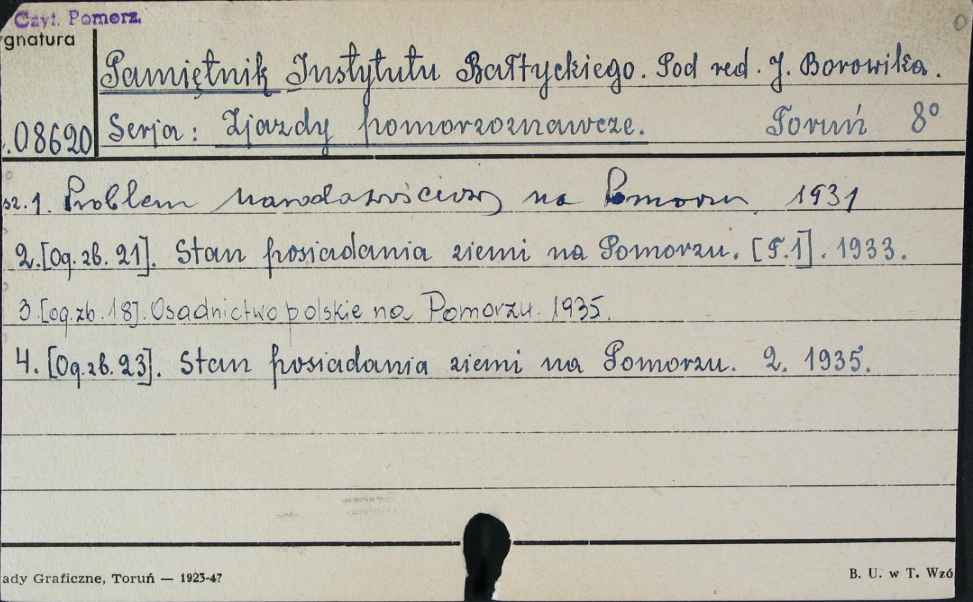 Czyt. Pomorz.
ygnatura
Pamiętnik Instytutu Bałtyckiego. Pod red. J. Borowika.
.08620 Serja: Zjazdy pomorzoznawcze. Toruń 8°
sz. 1. Problem narodowościowy na Pomorzu. 1931
2. [Og. zb. 21]. Stan posiadania ziemi na Pomorzu. [T.1]. 1933.
3. [og. zb. 18]. Osadnictwo polskie na Pomorzu. 1935.
4. [Og. zb. 23]. Stan posiadania ziemi na Pomorzu. 2. 1935.
ady Graficzne, Toruń — 1923-47
B. U. w T. Wzó